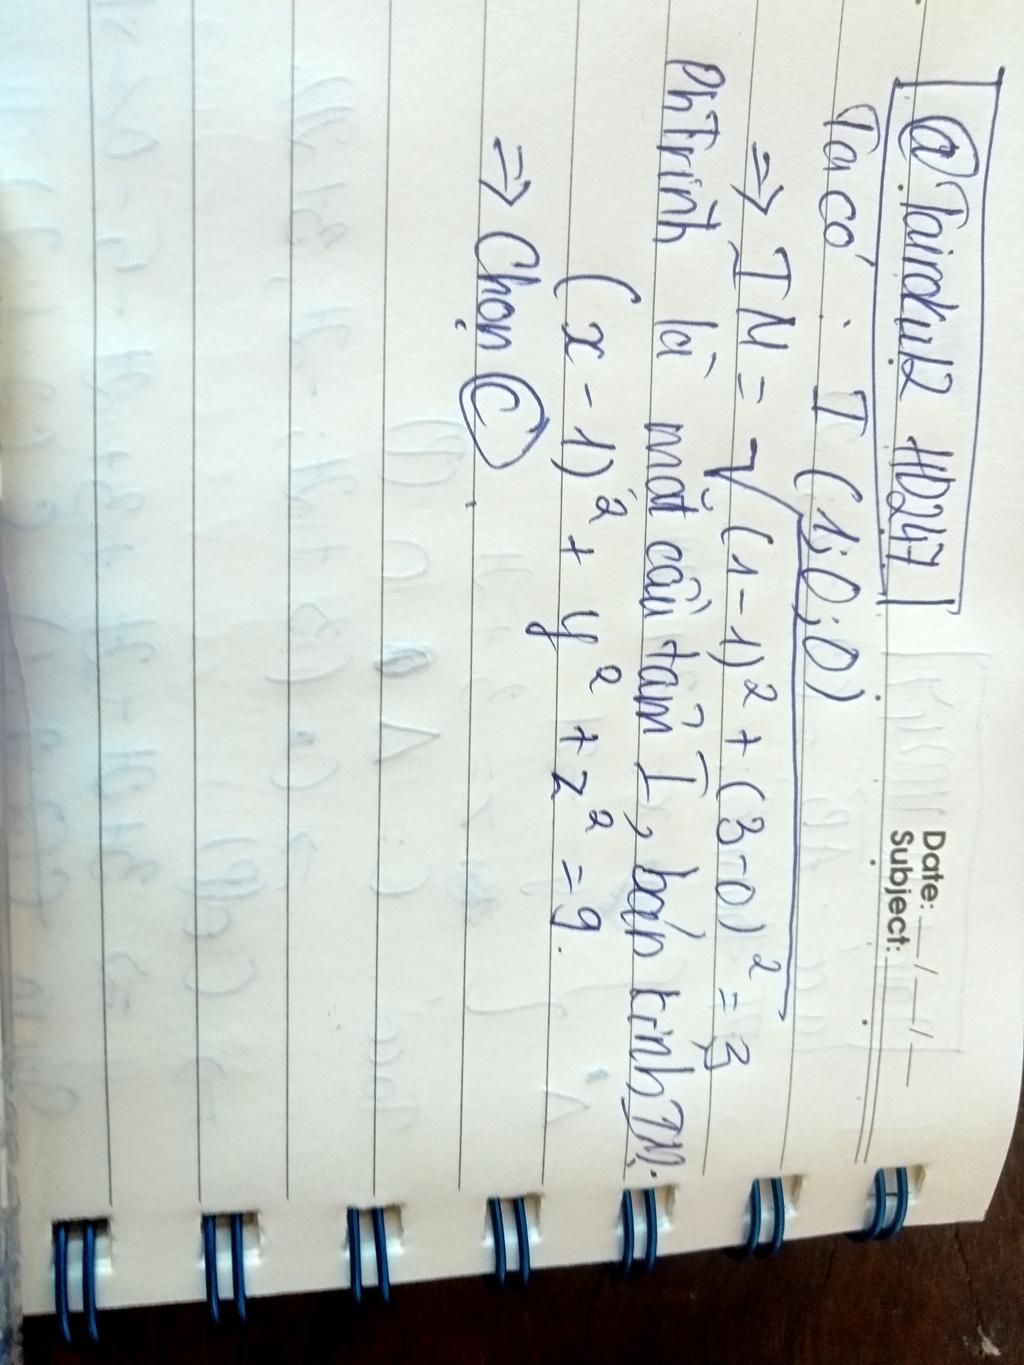 Date: __/__/__
Subject:
@Tairoku12 HD247
Ta có: I (1;0;0)
=> IM = √(1-1)² + (3-0)² = 3
PhTrình là mặt cầu tâm I, bán kính IM:
(x-1)² + y² + z² = 9.
=> Chọn C